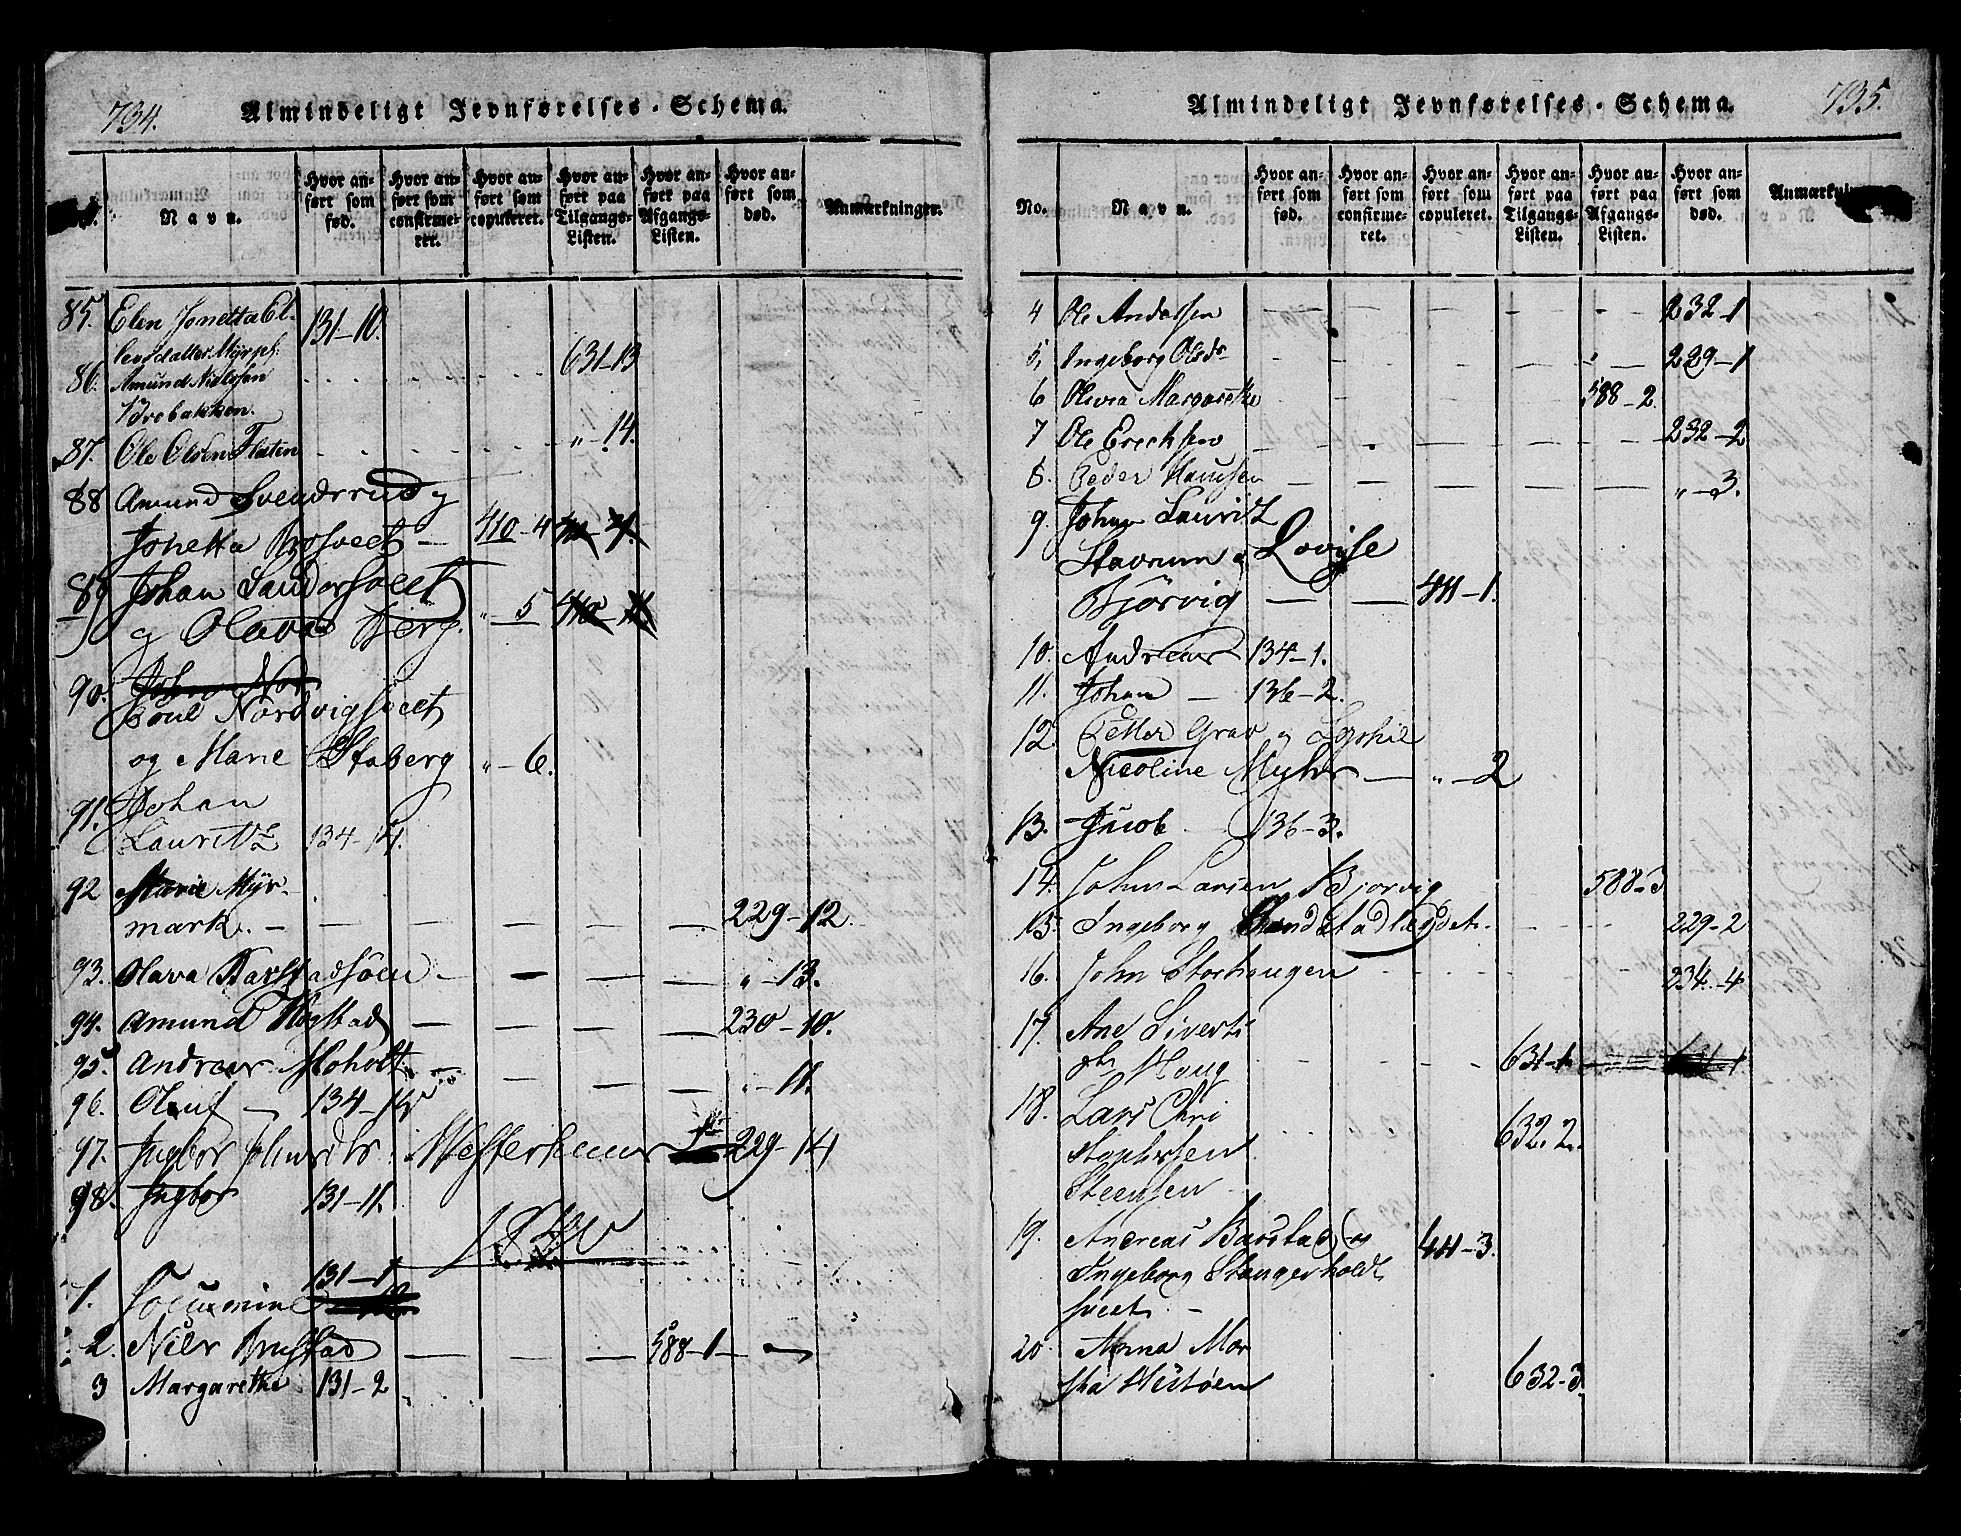 734.
Almindeligt Jevnførelses-Schema.
Navn.
Hvor anført som fød.
Hvor anført som confirmeret.
Hvor anført som copuleret.
Hvor anført paa Tilgangs-Listen.
Hvor anført paa Afgangs-Listen.
Hvor anført som død.
Anmærkninger.
85. Elen Jonetta El- 131-10.
86. Amund Nielssen 631-13
87. Ole Olsen Flaten „-14.
88 Amund Svendsrud og
Jonetta 410-4
89 Johan
og Olava Berg. „-5
90. Johan Nor
Poul Nordvigsveet
og Marie Staberg „-6.
91. Johan
Lauritz 134-14.
92 Marie Myr-
mark. - 229-12.
93. Olava „-13.
94. Amund Høgstad 230-10.
95. Andreas Moholt „-11.
96. Oluf 134-15
97. Ingbor Johnsdtr 229-14
98. Ingbor 131-11.
1820
131-1
1. Jocumine
2. Nils 588-1
3 Margarethe 131-2
735.
Almindeligt Jevnførelses-Schema.
No.
Navn.
Hvor anført som fød.
Hvor anført som confirmeret.
Hvor anført som copuleret.
Hvor anført paa Tilgangs-Listen.
Hvor anført paa Afgangs-Listen.
Hvor anført som død.
4 Ole Anderssen 232-1
5, Ingeborg Olsdr 229-1
6 Olivia Margarethe 588-2.
7 Ole Erichsen 232-2
8. Peder Hanssen „-3.
9. Johan Lauritz
Stavrum og Lovise
Bjørvig 411-1.
10. Andreas 134-1.
11. Johan - 136-2.
12. Petter Grav og Sophie
Nicoline Myhr „-2
13. Jacob 136-3.
14. John Larsen Bjørvig 588-3
15. Ingeborg 229-2
16. John Storhaugen 234-4
17. Ane Siverts
dtr Haug 631-1.
18. Lars Chri
stophersen 632.2.
Steensen
19. Andreas Barstad og 411-3.
Ingeborg Stangerholdt
sveet.
20 Anna Mar
tha 632-3.